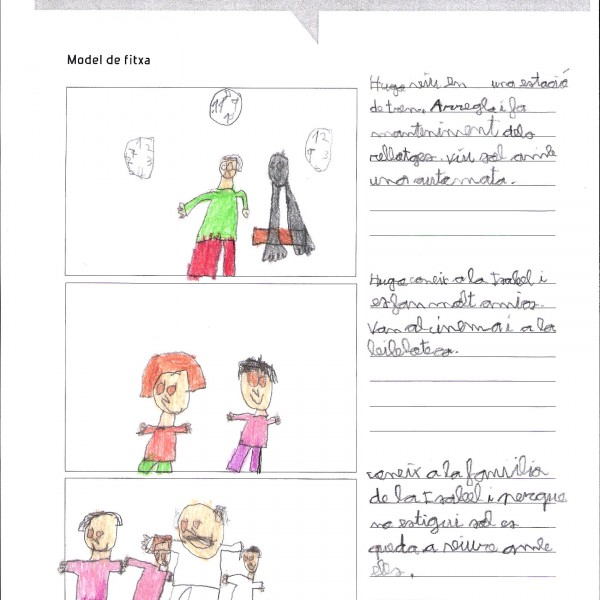 Model de fitxa
Hugo viu en una estació
de tren. Arregla i fa
manteniment dels
rellotges. Viu sol amb
una automata.
Hugo coneix a la Isabel i
es fan molt amics.
Van al cinema i a la
coneix a la familia
de la Isabel i perque
no estigui sol es
queda a viure amb
ells.
11 1
12
12
3